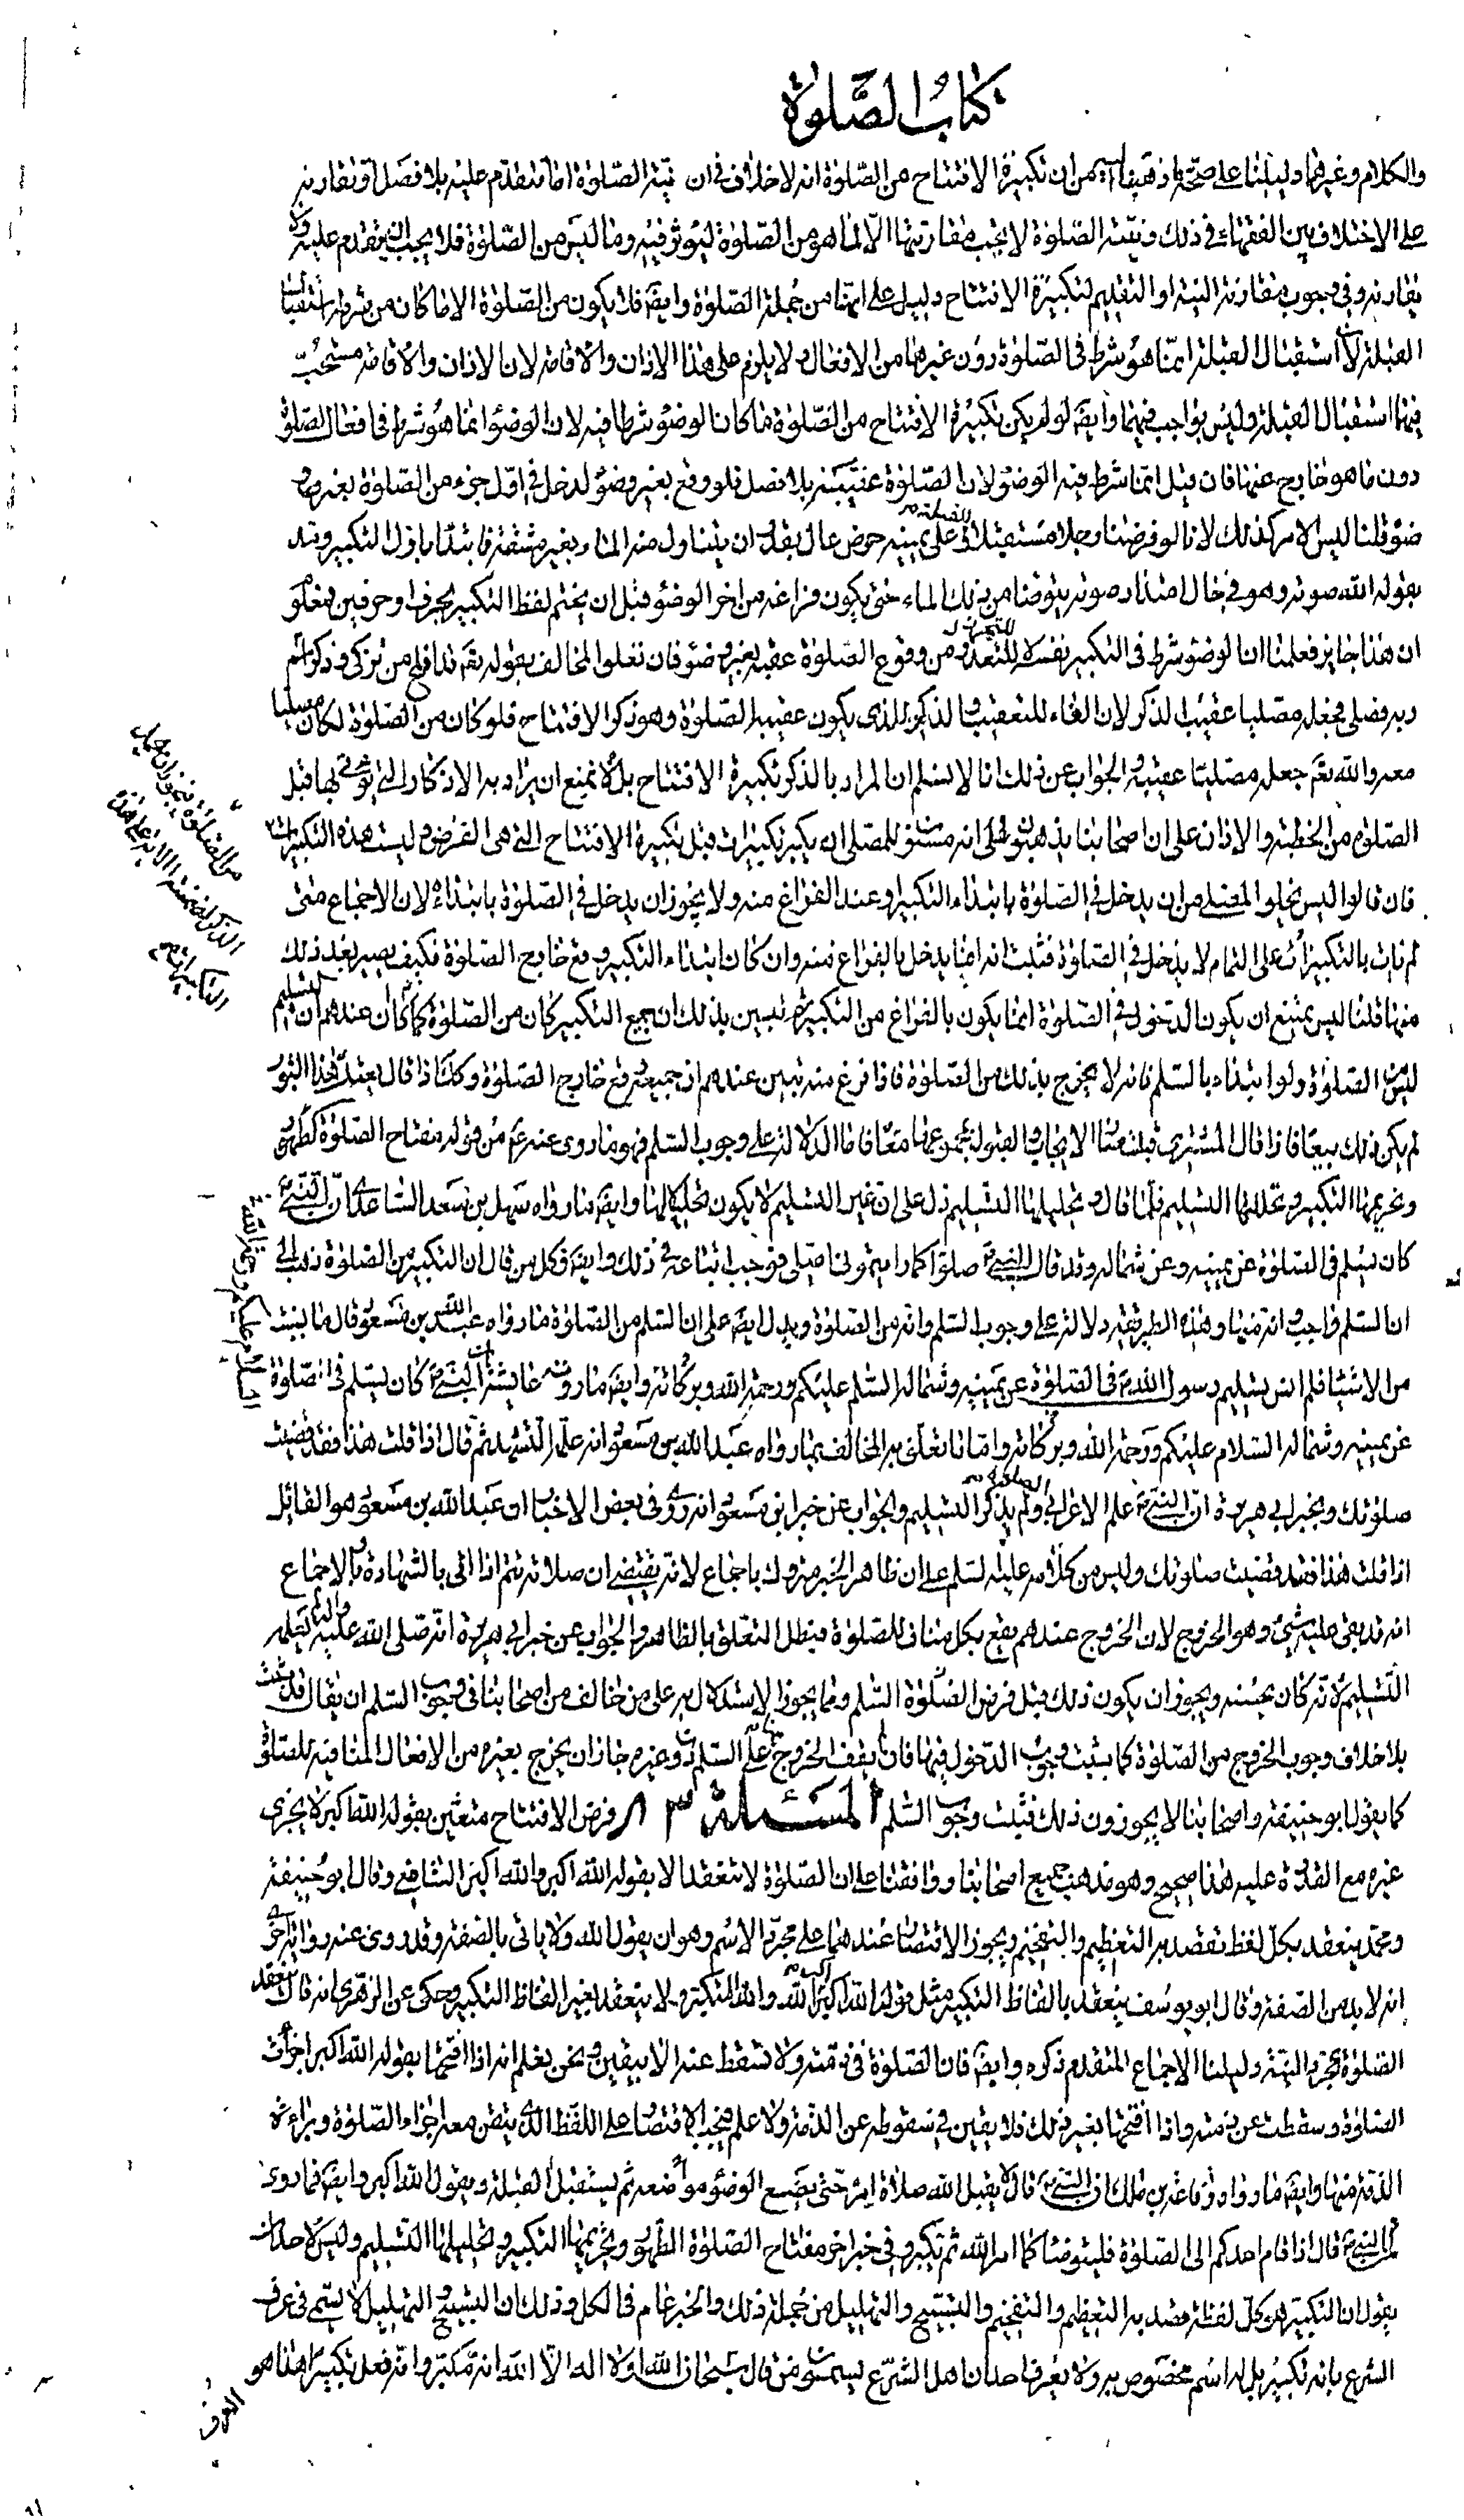 كتاب الصلوة
والكلام وغيرهما دليلنا على صحة ما ذهبنا إليه من ان تكبيرة الافتتاح من الصلوة انه لا خلاف في ان نية الصلوة اما تتقدم عليه بلا فصل او تقارنه
على الاختلاف بين الفقهاء في ذلك ونية الصلوة لا يجب مقارنتها الا لما هو من الصلوة ليؤثر فيه وما ليس من الصلوة فلا يجب ان يتقدم عليه ولا
يقارنه وفي وجوب مقارنة النية او التقديم لتكبيرة الافتتاح دليل على انها من جملة الصلوة وايضا فلا يكون من الصلوة الا ما كان من شروطه استقبال
القبلة لان استقبال القبلة انما هو شرط في الصلوة دون غيرها من الافعال ولا يلزم على هذا الاذان والاقامة لان الاذان والاقامة مستحب
فيهما استقبال القبلة وليس بواجب فيهما وايضا لو لم يكن تكبيرة الافتتاح من الصلوة ما كان الوضوء شرطا فيه لان الوضوء انما هو شرط في افعال الصلوة
دون ما هو خارج عنها فان قيل انما شرط فيه الوضوء لان الصلوة عقيبه بلا فصل فلو وقع بغير وضوء لدخل في اول جزء من الصلوة بغير و
ضوء قلنا ليس الامر كذلك لانا لو فرضنا رجلا مستقبلا للقبلة و على يمينه حوض عال يقدر ان يتناول منه الماء بغير مشقة فابتدأ باول التكبير ومد
بقوله الله صوته وهو في حال امتداد صوته يتوضأ من ذلك الماء حتى يكون فراغه من اخر الوضوء قبل ان يختم لفظ التكبير بحرف او حرفين معلوم
ان هذا جايز فعلمنا ان الوضوء شرط في التكبير نفسه لا للتحرز من وقوع الصلوة عقيبه بغير وضوء فان تعلقوا المخالف بقوله تعالى قد افلح من تزكى وذكر اسم
ربه فصلى فجعله مصليا عقيب الذكر لان الفاء للتعقيب والذكر الذي يكون عقيبه الصلوة وهو ذكر الافتتاح فلو كان من الصلوة لكان مصليا
معه والله تعالى جعله مصليا عقيبه الجواب عن ذلك انا لا نسلم ان المراد بالذكر تكبيرة الافتتاح بل لا نمنع ان يراد به الاذكار التي يؤتى بها قبل
الصلوة من الخطبة والاذان على ان اصحابنا يذهبون الى انه مسنون للمصلي ان يكبر تكبيرات قبل تكبيرة الافتتاح التي هي الفرض و ليست هذه التكبيرات
من الصلوة فيجوز ان يحمل
الذكر الذي تضمنته الآية على هذه
التكبيرات
فان قالوا ليس يخلو المصلى من ان يدخل في الصلوة بابتداء التكبير وعند الفراغ منه ولا يجوز ان يدخل في الصلوة بابتداء لان الاجماع متى
لم يات بالتكبيرات على التمام لا يدخل في الصلوة فثبت انه انما يدخل بالفراغ منه وان كان ابتداء التكبير وقع خارج الصلوة فكيف يصير بعد ذلك
منها قلنا ليس يمتنع ان يكون الدخول في الصلوة انما يكون بالفراغ من التكبير ثم تبين بذلك ان جميع التكبير كان من الصلوة كما كان عندهم ان التسليم
ليس من الصلوة ولو ابتداء بالسلم فانه لا يخرج بذلك من الصلوة فاذا فرغ منه تبين عندهم ان جميعه وقع خارج الصلوة وكذا اذا قال بعتك هذا الثوب
لم يكن ذلك بيعا فاذا قال المشتري قبلت صار الايجاب والقبول بمجموعهما معا فاما الدلالة على وجوب السلم فهو ما روى عنه ع من قوله مفتاح الصلوة الطهور
وتحريمها التكبير وتحليلها التسليم فلما قال و تحليلها التسليم دل على ان غير التسليم لا يكون تحليلا لها وايضا ما رواه سهل بن سعد الساعدي ان النبي ص
كان يسلم في الصلوة عن يمينه وعن شماله وقد قال النبي ص صلوا كما رايتموني اصلي فوجب اتباعه في ذلك وايضا فكل من قال ان التكبير من الصلوة ذهب الى
ان السلم واجب وانه منها وهذه الطريقة دلالة على وجوب السلم وانه من الصلوة ويدل ايضا على ان السلم من الصلوة ما رواه عبد الله بن مسعود قال ما نسيت
من الاشياء فلم انس تسليم رسول الله ص في الصلوة عن يمينه وشماله السلم عليكم ورحمة الله وبركاته وايضا ما روته عايشة ان النبي ص كان يسلم في الصلوة
السلام عليكم ورحمة الله
عن يمينه وشماله السلام عليكم ورحمة الله وبركاته واما ما تعلق به المخالف بما رواه عبد الله بن مسعود انه علمه التشهد ثم قال اذا قلت هذا فقد قضيت
صلوتك وبخبر ابي هريرة ان النبي ص علم الاعرابي الصلوة ولم يذكر التسليم والجواب عن خبر ابن مسعود انه روى في بعض الاخبار ان عبد الله بن مسعود هو القائل
اذا قلت هذا فقد قضيت صلوتك وليس من كلامه عليه السلم على ان ظاهر الخبر متروك باجماع لانه يقتضي ان صلاته تتم اذا اتى بالشهادة وبالاجماع
انه قد بقى عليه شئ وهو الخروج لان الخروج عندهم يقع بكل مناف للصلوة فبطل التعلق بالظاهر والجواب عن خبر ابي هريرة انه صلى الله عليه واله لم يعلمه
التسليم لانه كان يحسنه ويجوز ان يكون ذلك قبل فرض الصلوة السلم ومما يجوز الاستدلال به على من خالف من اصحابنا في وجوب السلم ان يقال قد ثبت
بلا خلاف وجوب الخروج من الصلوة كما يثبت وجوب الدخول فيها فان لم يقف الخروج منها على السلم دون غيره جاز ان يخرج بغيره من الافعال المنافية للصلوة
كما يقول ابو حنيفة واصحابنا لا يجوزون ذلك فثبت وجوب السلم المسئلة ٨٣ فرض الافتتاح متعين بقوله الله اكبر لا يجزى
غيره مع القدرة عليه هذا صحيح وهو مذهب جميع اصحابنا ووافقنا على ان الصلوة لا تنعقد الا بقوله الله اكبر والله اكبر الشافعي وقال ابو حنيفة
ومحمد ينعقد بكل لفظ تقصد به التعظيم والتفخيم ويجوز الاقتصار عندهما على مجرد الاسم وهو ان يقول الله ولا ياتى بالصفة وقد روى عنه رواية اخرى
انه لا بد من الصفة وقال ابو يوسف ينعقد بالفاظ التكبير مثل قوله الله اكبر الله اكبر والله الكبير ولا ينعقد بغير الفاظ التكبير وحكى عن الزهري انه قال تنعقد
الصلوة بمجرد النية دليلنا الاجماع المتقدم ذكره وايضا فان الصلوة في ذمته ولا تسقط عنه الا بيقين ونحن نعلم انه اذا افتتحها بقوله الله اكبر اجزأت
الصلوة وسقطت عن ذمته واذا افتتحها بغير ذلك فلا يقين في سقوطه عن الذمة ولا علم فيجب الاقتصار على اللفظ الذي يتيقن معه اجزاء الصلوة وبراءة
الذمة منها وايضا ما رواه رفاعة بن مالك ان النبي ص قال لا يقبل الله صلاة امرء حتى يضع الوضوء مواضعه ثم يستقبل القبلة ويقول الله اكبر وايضا فما روى
عن النبي ص قال اذا قام احدكم الى الصلوة فليتوضأ كما امر الله ثم يكبر وفي خبر اخر مفتاح الصلوة الطهور وتحريمها التكبير وتحليلها التسليم وليس لاحد ان
يقول ان التكبير هو كل لفظة قصد به التعظيم والتفخيم والتسبيح والتهليل من جملة ذلك والخبر عام في الكل وذلك ان التسبيح والتهليل لا يسمى في عرف
الشرع بانه تكبير بل له اسم مخصوص به ولا يعرف احد ان اهل الشرع يسمون من قال سبحان الله او لا اله الا الله انه مكبر وانه فعل تكبيرا هذا هو
العرف